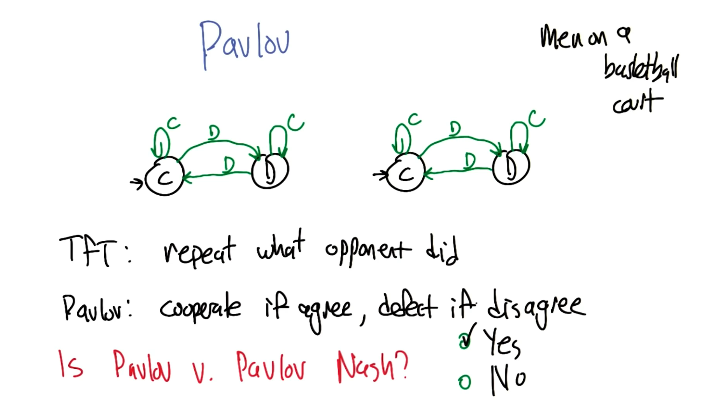 Pavlov
Men on a
basketball
court
C D C
D
C D
C D C
D
C D
TFT: repeat what opponent did
Pavlov: cooperate if agree, defect if disagree
Is Pavlov v. Pavlov Nash?
Yes
No